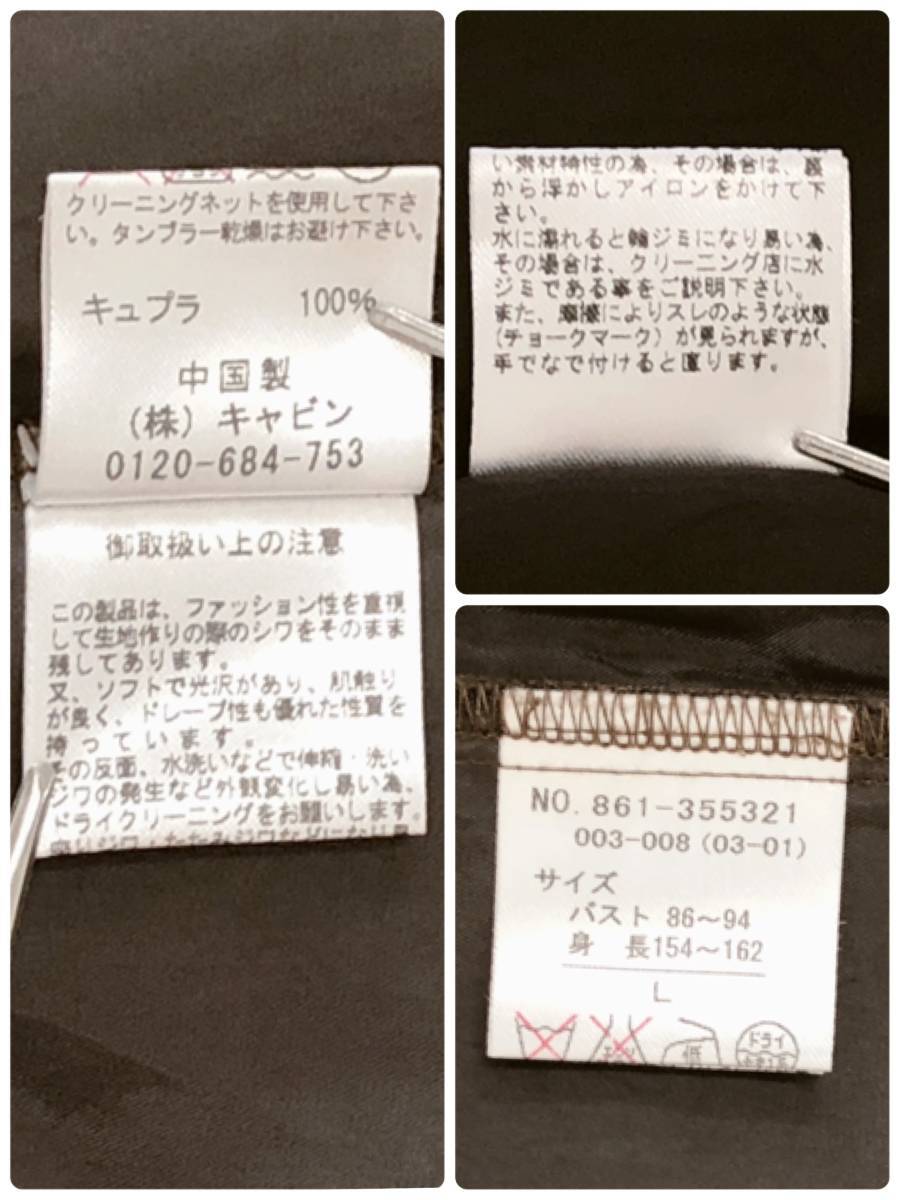 クリーニングネットを使用して下さ
い。タンブラー乾燥はお避け下さい。
キュプラ 100%
中国製
（株）キャビン
0120-684-753
御取扱い上の注意
この製品は、ファッション性を重視
して生地作りの際のシワをそのまま
残してあります。
又、ソフトで光沢があり、肌触り
が良く、ドレープ性も優れた性質を
持っています。
その反面、水洗いなどで伸縮・洗い
ジワの発生など外観変化し易い為、
ドライクリーニングをお願いします。
い素材特性の為、その場合は、裏
から浮かしアイロンをかけて下
さい。
水に濡れると輪ジミになり易い為、
その場合は、クリーニング店に水
ジミである事をご説明下さい。
また、摩擦によりスレのような状態
（チョークマーク）が見られますが、
手でなで付けると直ります。
NO. 861-355321
003-008 (03-01)
サイズ
バスト 86～94
身 長154～162
L
低
ドライ